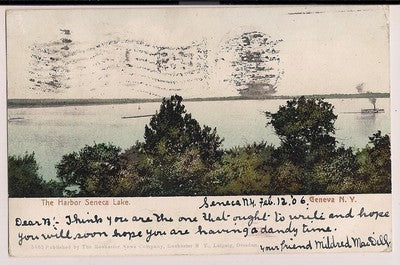 The Harbor Seneca Lake.
Seneca N.Y. Feb. 12, 06.
Geneva N. Y.
Dear N:- I think you are the one that ought to write and hope
you will soon hope you are having a dandy time.
your friend Mildred
Published by The Rochester News Company, Rochester N. Y., Leipzig, Dresden